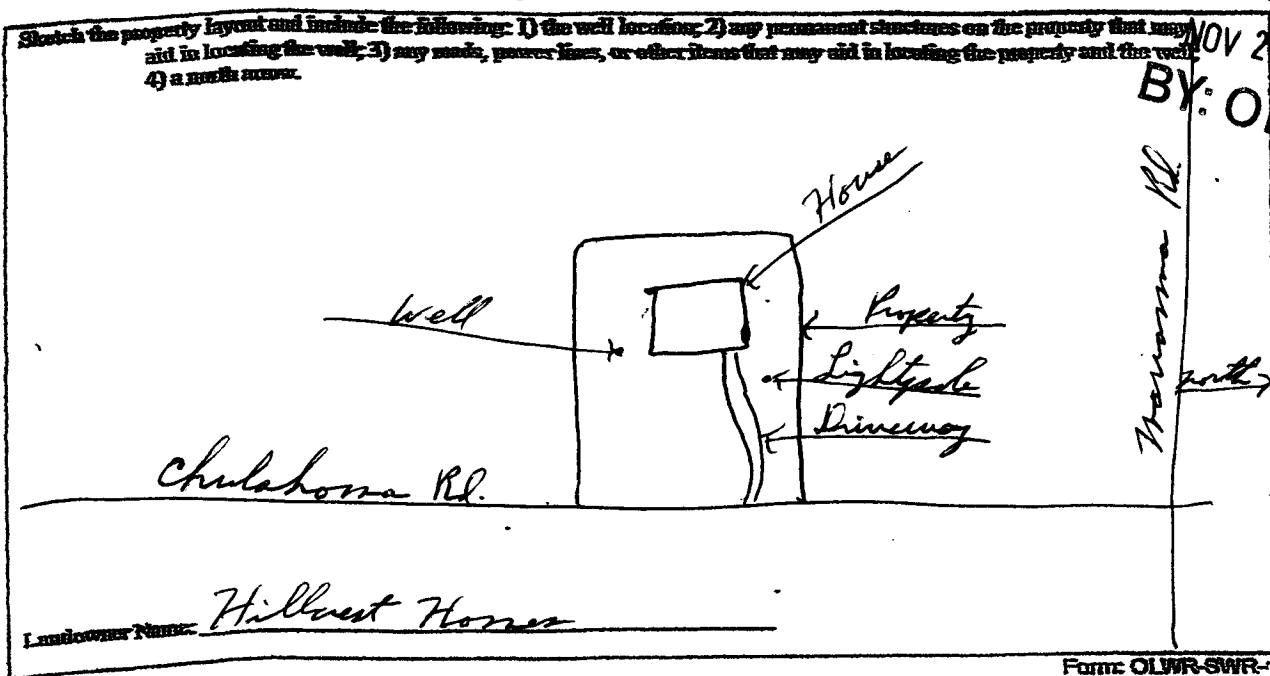 Sketch the property layout and include the following: 1) the well location; 2) any permanent structures on the property that may
aid in locating the well; 3) any roads, power lines, or other items that may aid in locating the property and the well;
4) a north arrow.
NOV 2
BY: OL
House
Well
Property
Lightpole
Driveway
Rd.
north
Chulahoma Rd.
Landowner Name: Hillcrest Homes
Form: OLWR-SWR-